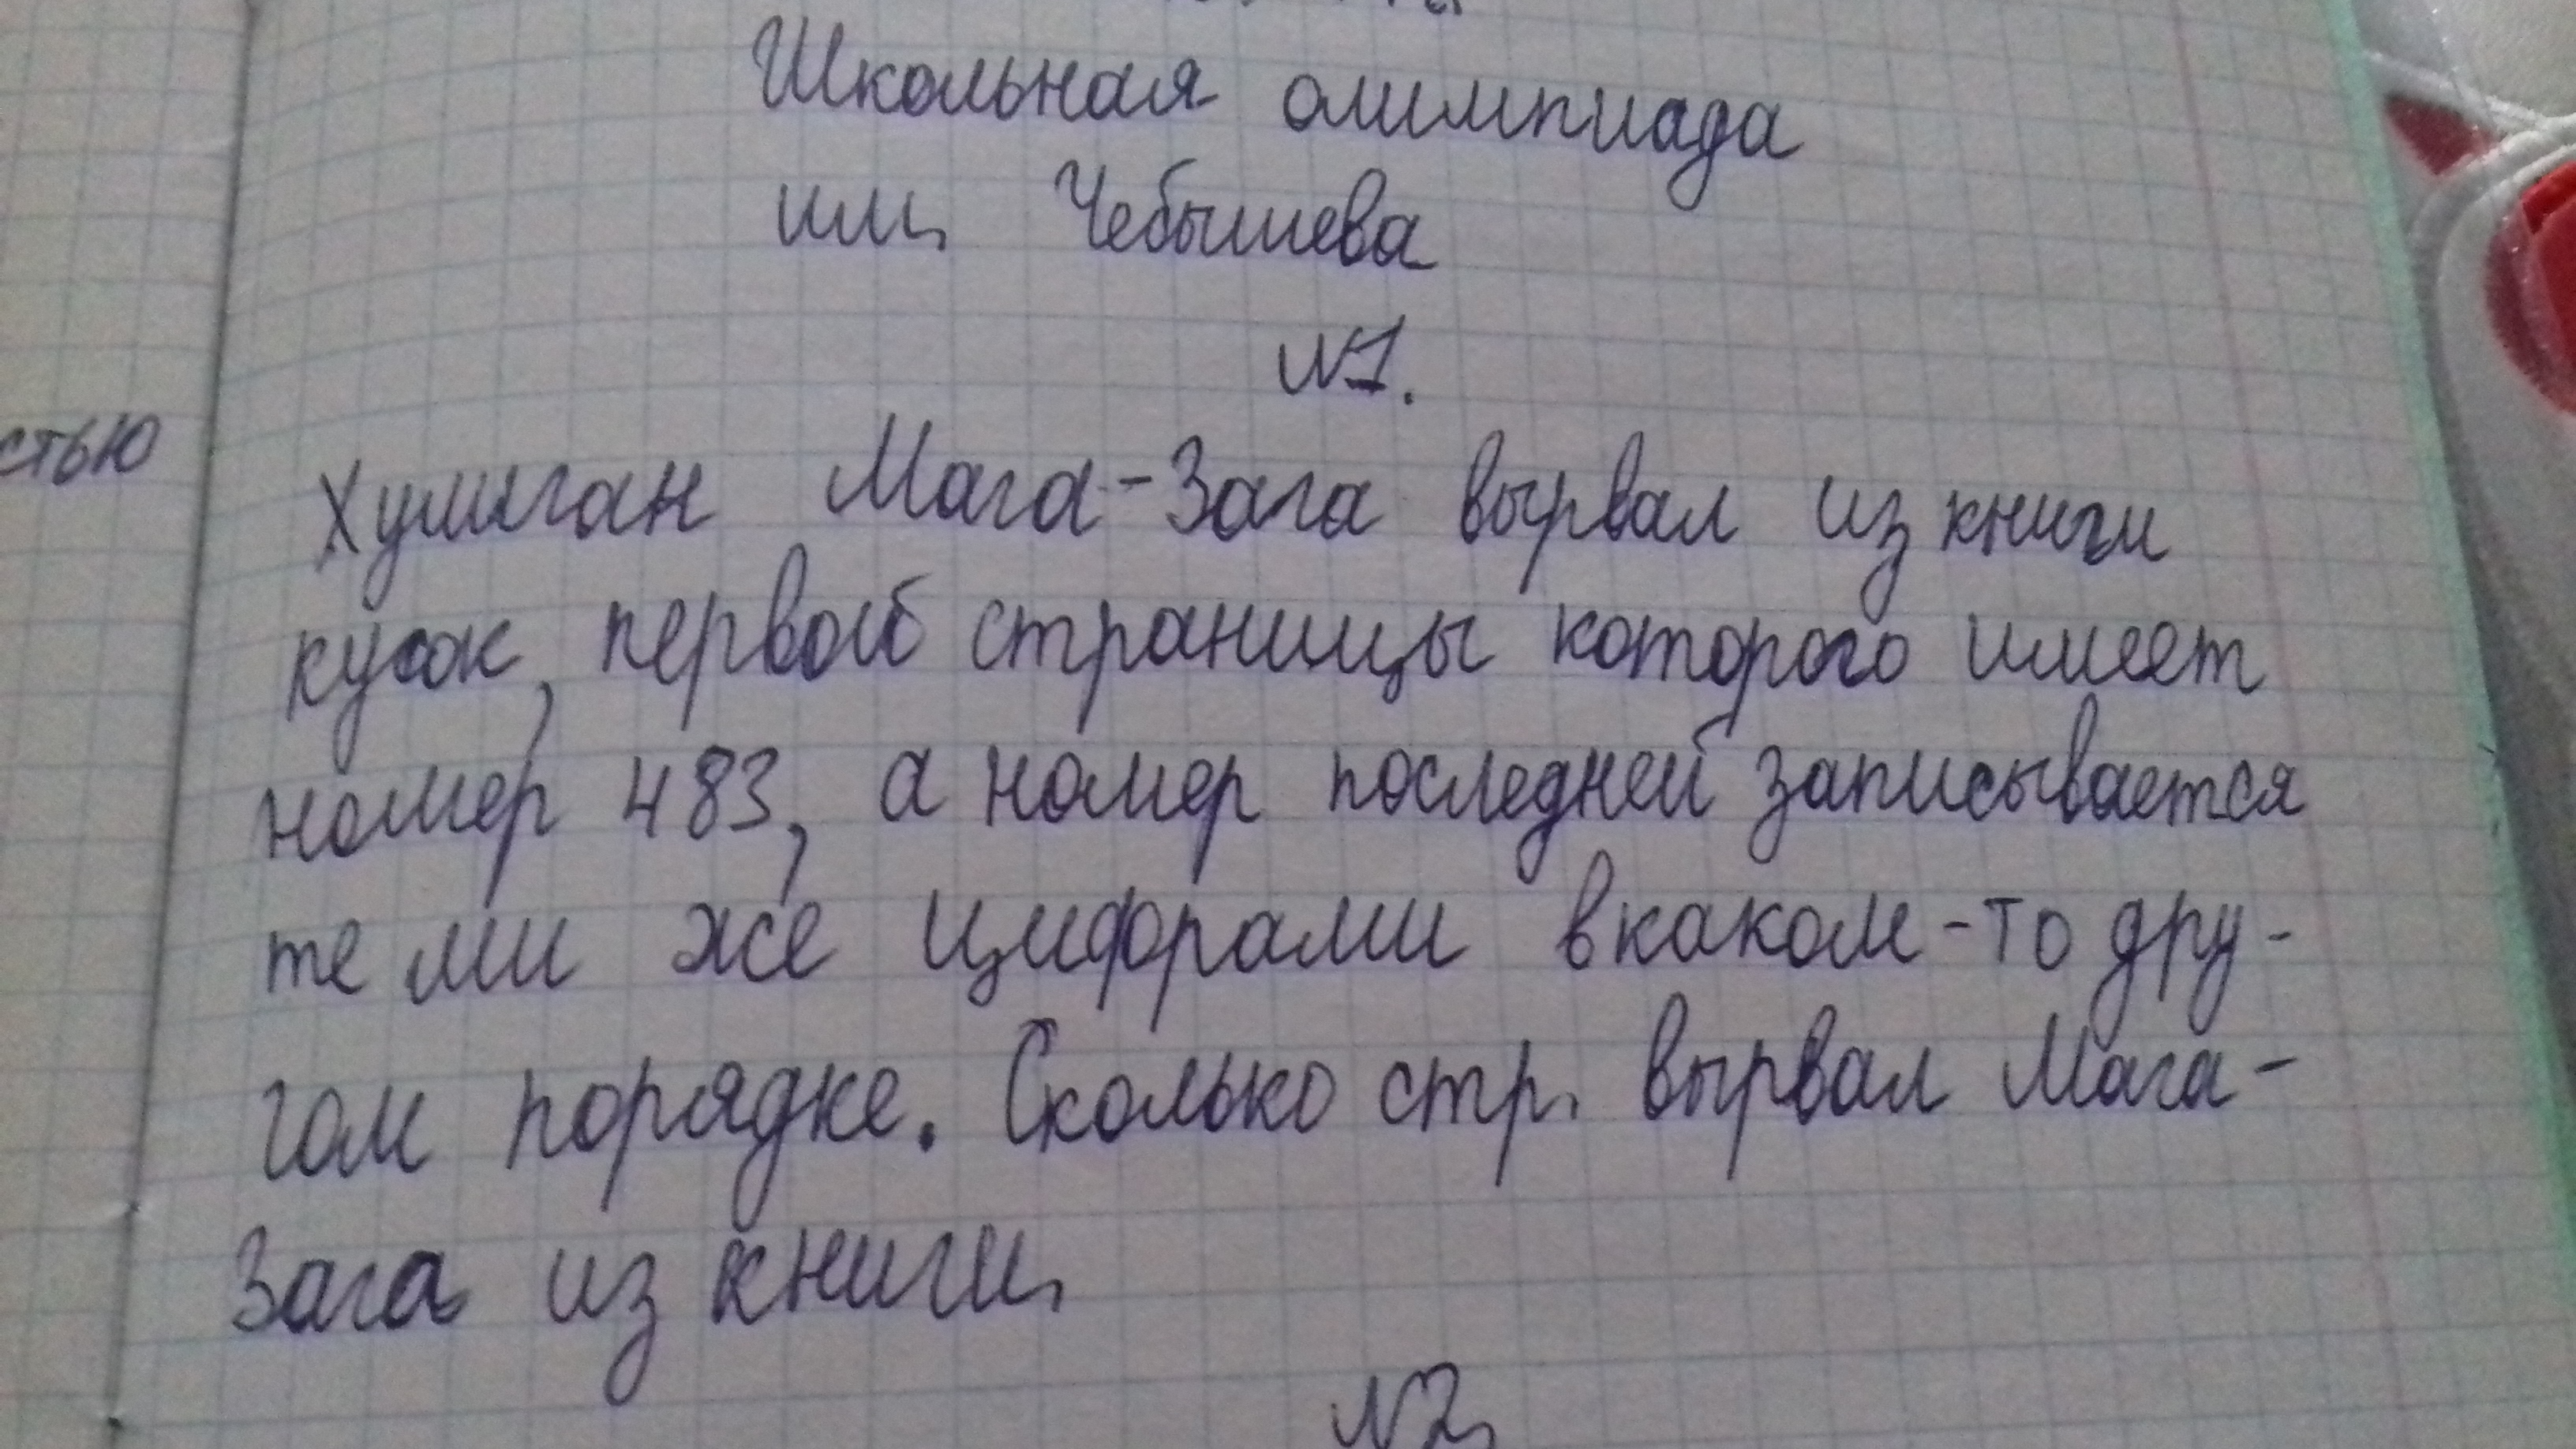 Школьная олимпиада
им. Чебышева
№1.
стью
Хулиган Мага-Зага вырвал из книги
кусок, первой страницы которого имеет
номер 483, а номер последней записывается
теми же цифрами в каком-то дру-
гом порядке. Сколько стр. вырвал Мага-
Зага из книги.
№2.